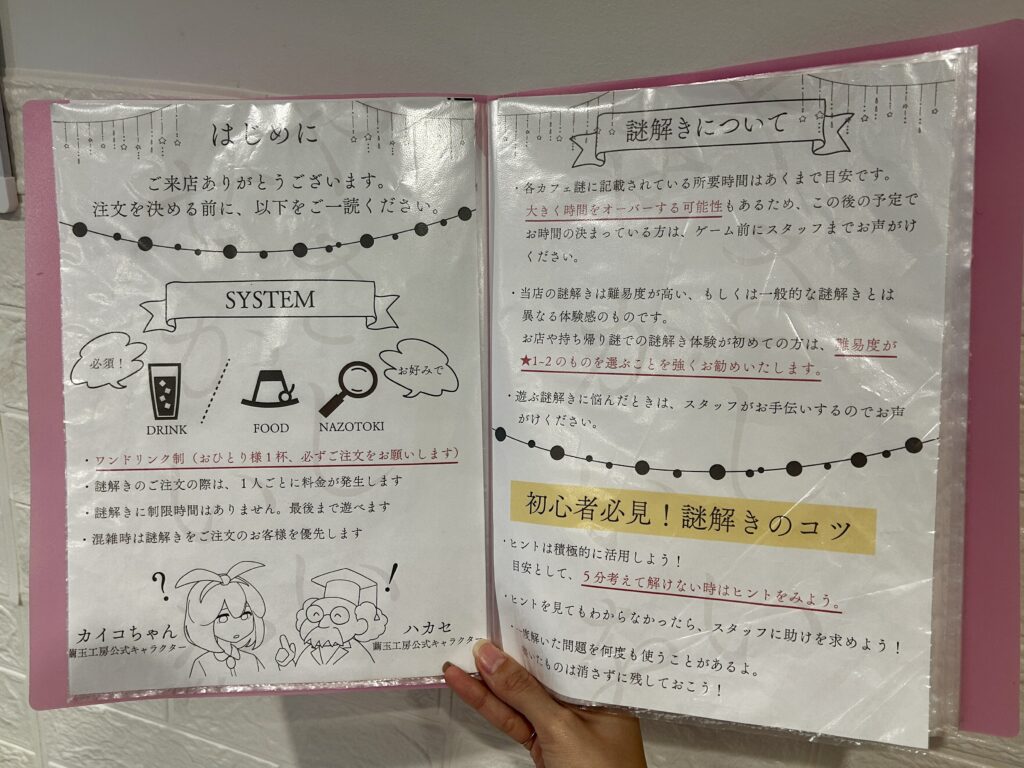 はじめに
ご来店ありがとうございます。
注文を決める前に、以下をご一読ください。
SYSTEM
必須！
お好みで
DRINK
FOOD
NAZOTOKI
・ワンドリンク制（おひとり様１杯、必ずご注文をお願いします）
・謎解きのご注文の際は、１人ごとに料金が発生します
・謎解きに制限時間はありません。最後まで遊べます
・混雑時は謎解きをご注文のお客様を優先します
?
!
カイコちゃん
繭玉工房公式キャラクター
ハカセ
繭玉工房公式キャラクター
謎解きについて
・各カフェ謎に記載されている所要時間はあくまで目安です。
大きく時間をオーバーする可能性もあるため、この後の予定で
お時間の決まっている方は、ゲーム前にスタッフまでお声がけ
ください。
・当店の謎解きは難易度が高い、もしくは一般的な謎解きとは
異なる体験感のものです。
お店や持ち帰り謎での謎解き体験が初めての方は、難易度が
★1-2のものを選ぶことを強くお勧めいたします。
・遊ぶ謎解きに悩んだときは、スタッフがお手伝いするのでお声
がけください。
初心者必見！謎解きのコツ
・ヒントは積極的に活用しよう！
目安として、５分考えて解けない時はヒントをみよう。
・ヒントを見てもわからなかったら、スタッフに助けを求めよう！
・一度解いた問題を何度も使うことがあるよ。
いたものは消さずに残しておこう！